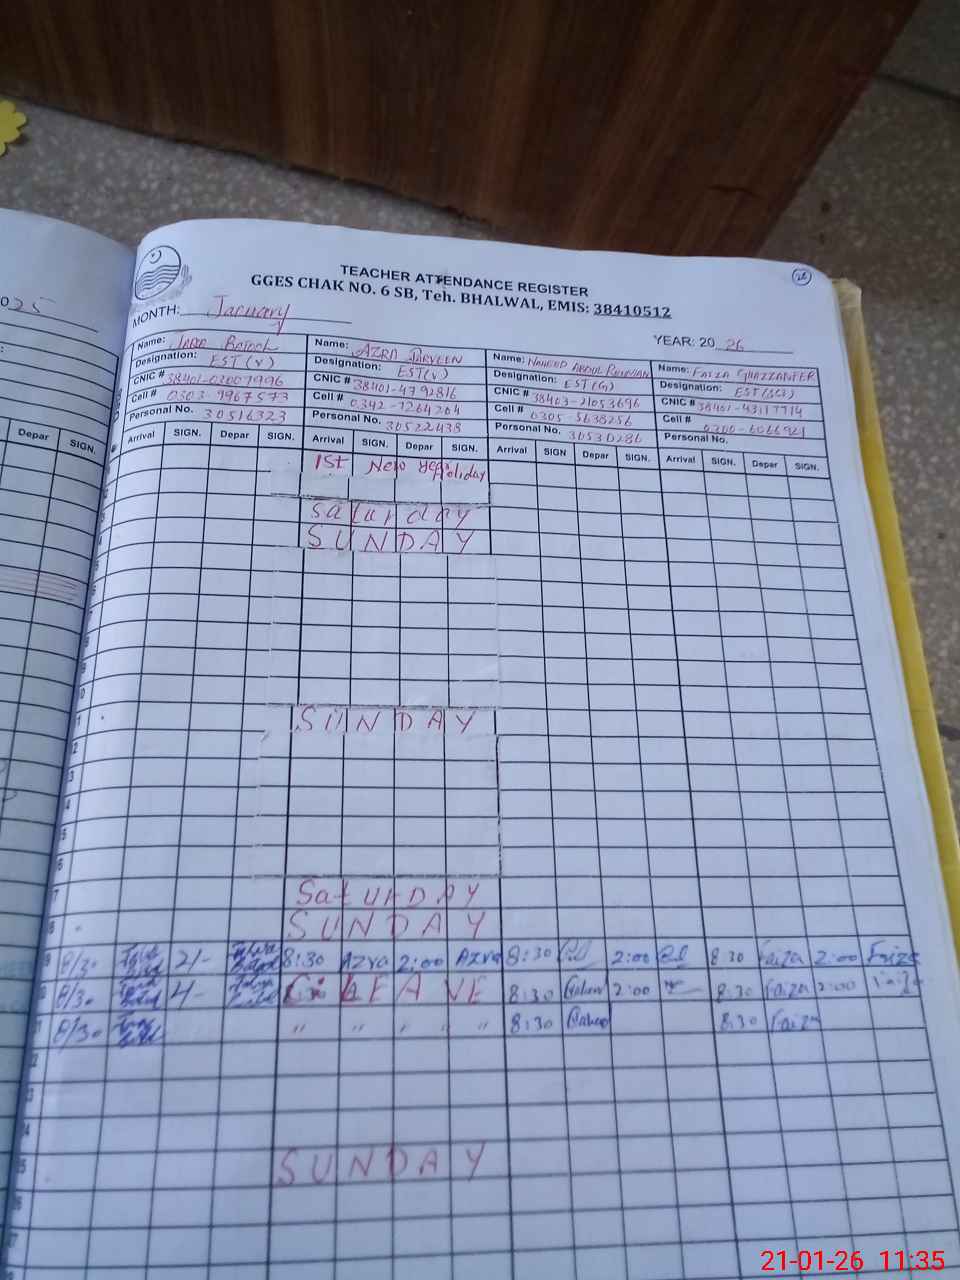 025
28
TEACHER ATTENDANCE REGISTER
GGES CHAK NO. 6 SB, Teh. BHALWAL, EMIS: 38410512
MONTH: January
YEAR: 20 26
Name: Name: AZRA PARVEEN Name: NAHEED ABDUL REHMAN Name: FAIZA GHAZZANFER
Designation: EST(V) Designation: EST(V) Designation: EST(G) Designation: EST(SCI)
CNIC # 38401-02007996 CNIC # 38401-4792816 CNIC # 38403-21053696 CNIC # 38401-43117714
Cell # 0303-9967573 Cell # 0342-7264204 Cell # 0305-5638256 Cell # 0300-6066921
Personal No. 30516323 Personal No. 30522438 Personal No. 30530286 Personal No.
Depar SIGN. Arrival SIGN. Depar SIGN. Arrival SIGN. Depar SIGN. Arrival SIGN Depar SIGN. Arrival SIGN. Depar SIGN.
1st New Year Holiday
Saturday
SUNDAY
SUNDAY
SatURDAY
SUNDAY
8/30 2/- 8:30 Azra 2:00 Azra 8:30 2:00 8 30 Faiza 2:00 Faiza
8/30 4- LEAVE 8:30 2:00 8:30 Faiza 2:00 Faiza
8/30 " " " " " 8:30 8:30 Faiza
SUNDAY
21-01-26 11:35